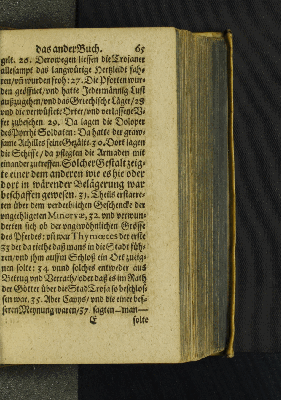 das ander Buch. 65
gūt. 26. Derowegen liessen die Trojaner
allesampt das langwürige Hertzleid fah-
ren/ vñ wurden froh: 27. Die Pforten wur-
den geöffnet/ vnd hatte Jedermānnig Lust
außzugehen/ vnd das Griechische Läger/ 28
vnd die verwüstete Orter/ vnd verlassne V-
fer zubesehen. 29. Da lagen die Dolopes
des Pyrrhi Soldaten: Da hatte der graw-
same Achilles seine Gezälte. 30. Dort lagen
die Schiffe/ da pflegten die Armaden mit
einander zutreffen. Solcher Gestalt zeig-
te einer dem anderen wie es hie oder
dort in wärender Belägerung war
beschaffen gewesen. 31. Theils erstarre-
ten über dem verderblichen Geschencke der
ungeheiligeten Minervæ, 32. vnd verwun-
derten sich ob der ungewöhnlichen Grösse
des Pferdes: vñ war Thymœtes der erste
33 der da riethe daß mans in die Stadt füh-
ren/ vnd ihm auffm Schloß ein Ort zueig-
nen solte: 34. vnnd solches entweder aus
Betrug vnd Verrath/ oder daß es im Rath
der Götter über die Stad Troja so beschlos-
sen war. 35. Aber Capys/ vnd die einer bes-
seren Meynung waren/ 37. sagten — man —
E solte